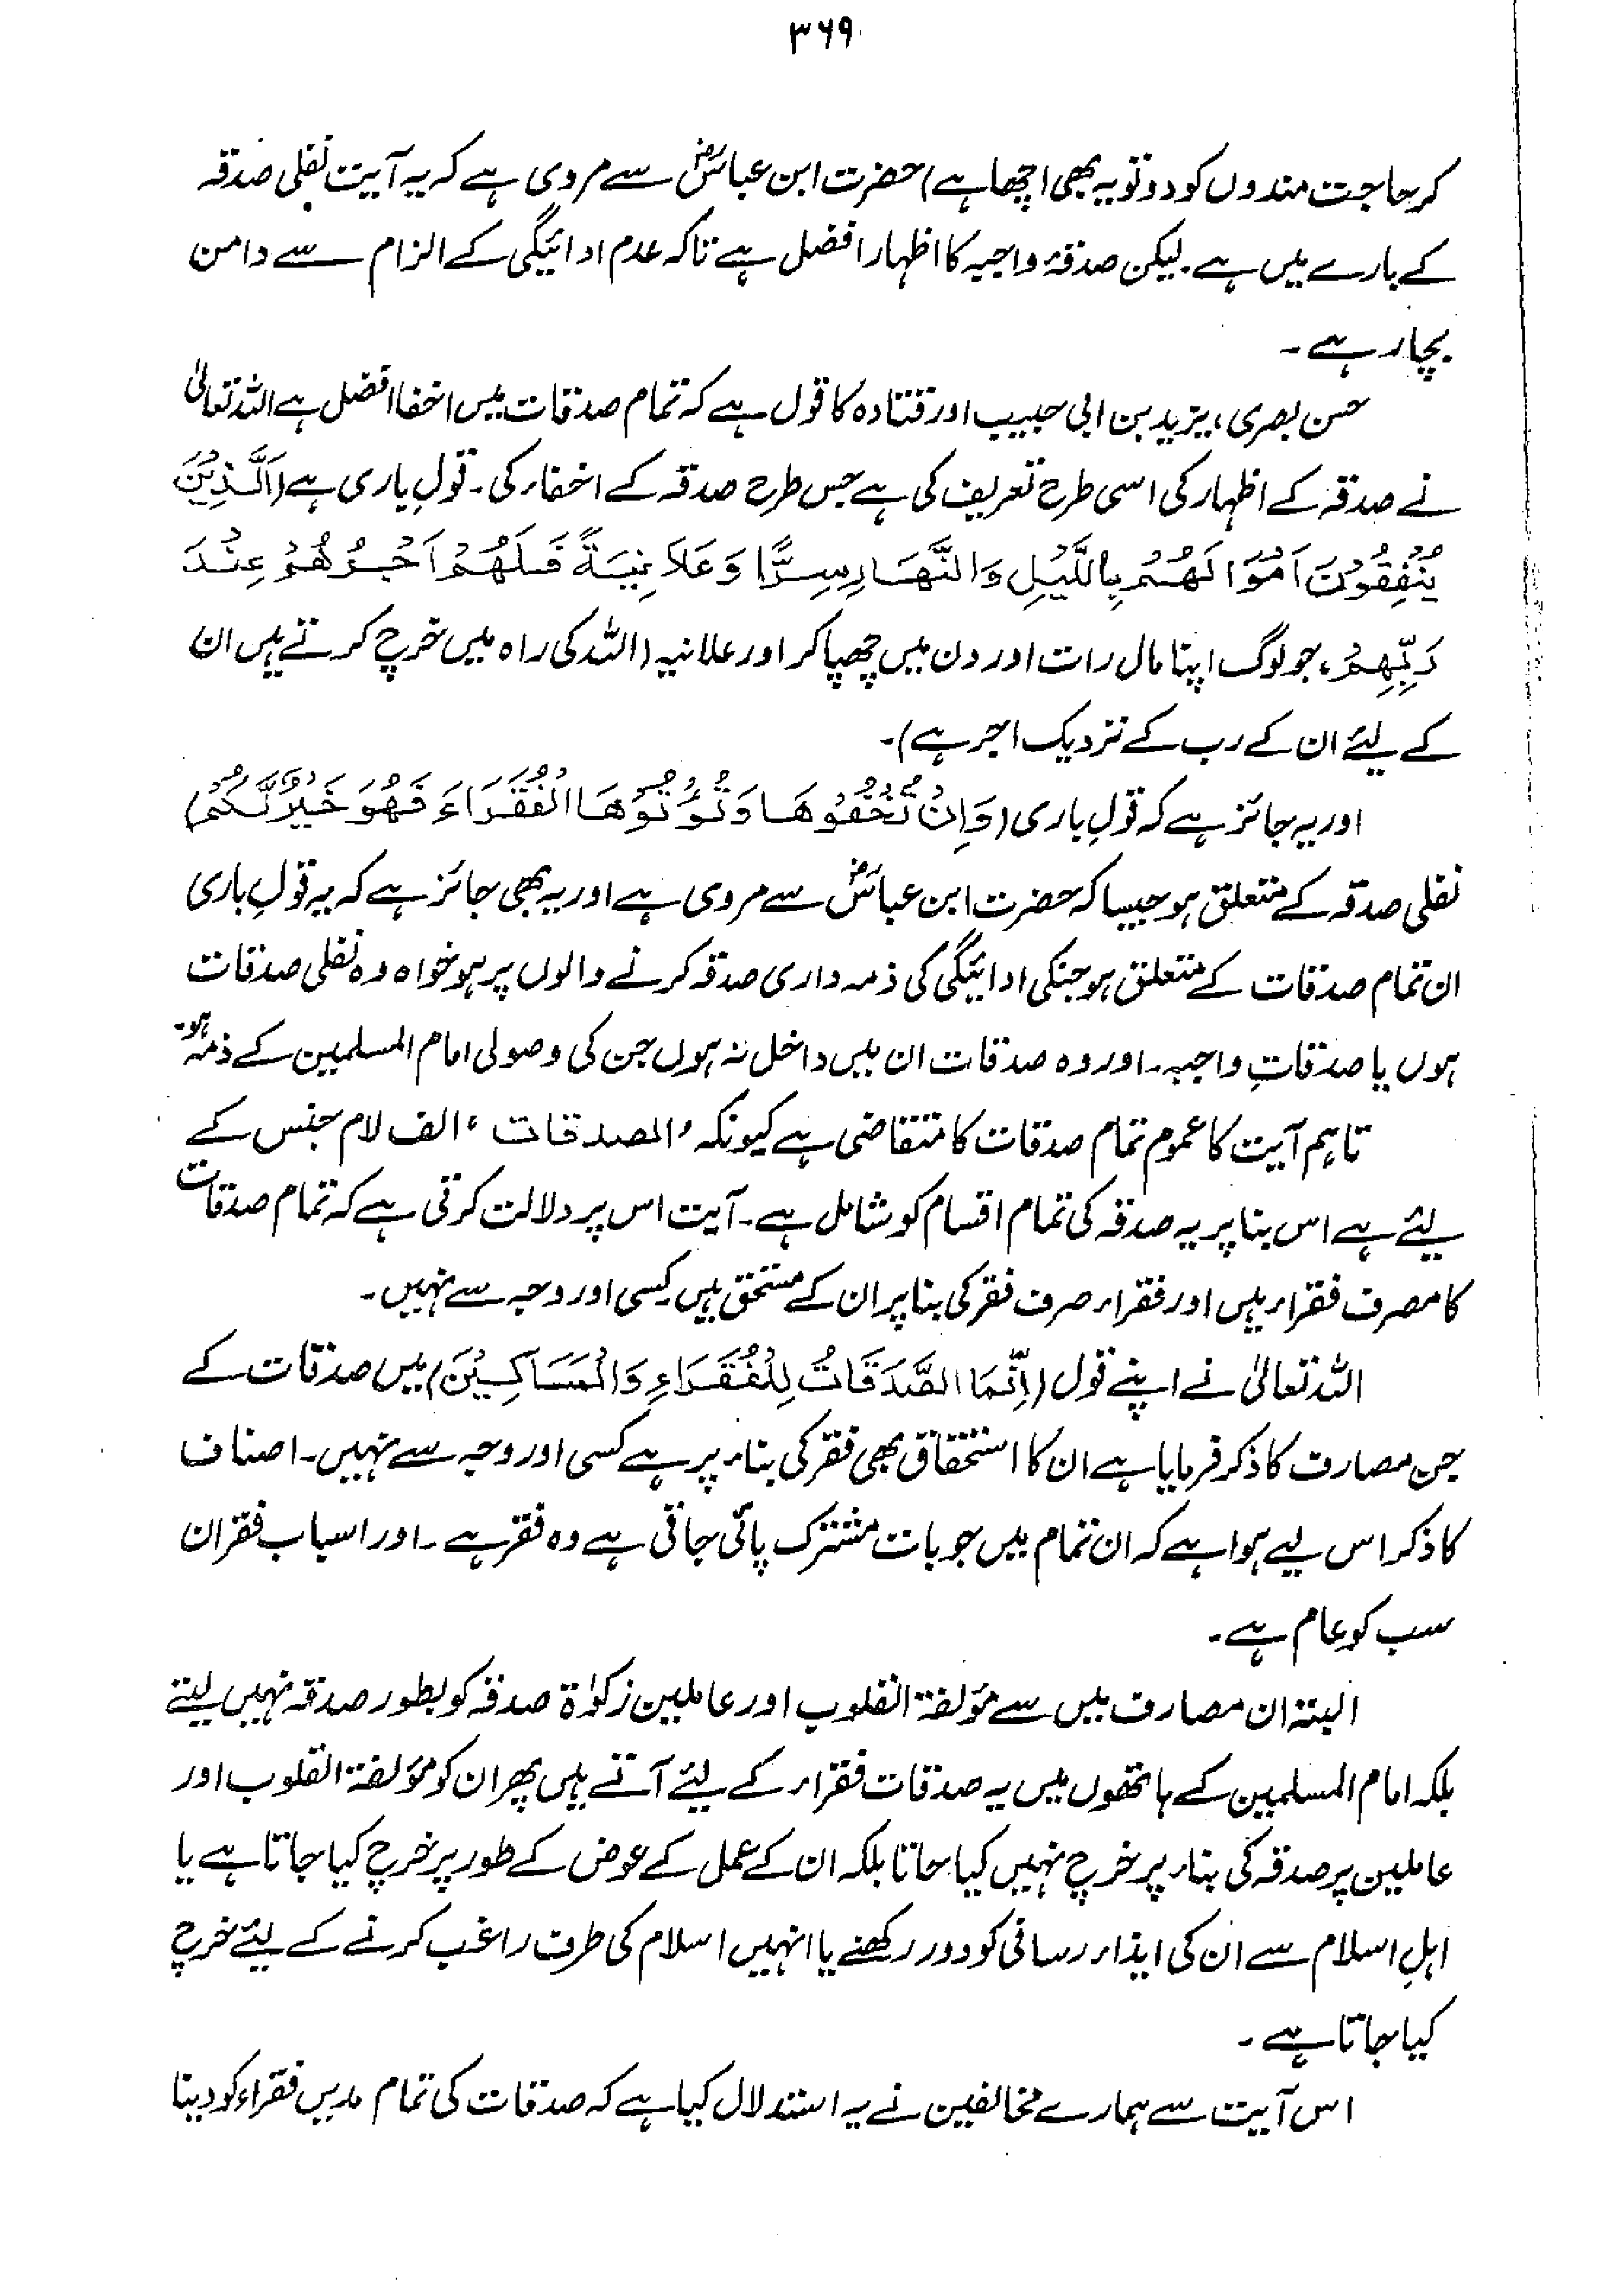 ۳۶۹
کر حاجت مندوں کو دو تو یہ بھی اچھا ہے) حضرت ابن عباسؓ سے مروی ہے کہ یہ آیت نفلی صدقہ
کے بارے میں ہے۔ لیکن صدقۂ واجبہ کا اظہار افضل ہے تاکہ عدم ادائیگی کے الزام سے دامن
بچا رہے۔
حسن بصری، یزید بن ابی حبیب اور قتادہ کا قول ہے کہ تمام صدقات میں اخفا افضل ہے اللہ تعالیٰ
نے صدقہ کے اظہار کی اسی طرح تعریف کی ہے جس طرح صدقہ کے اخفاء کی۔ قولِ باری ہے (اَلَّذِیْنَ
یُنْفِقُوْنَ اَمْوَالَھُمْ بِاللَّیْلِ وَالنَّھَارِ سِرًّا وَّعَلَانِیَۃً فَلَھُمْ اَجْرُھُمْ عِنْدَ
رَبِّھِمْ، جو لوگ اپنا مال رات اور دن میں چھپا کر اور علانیہ (اللہ کی راہ میں خرچ کرتے ہیں ان
کے لیئے ان کے رب کے نزدیک اجر ہے)۔
اور یہ جائز ہے کہ قولِ باری (وَاِنْ تُخْفُوْھَا وَتُؤْتُوْھَا الْفُقَرَاءَ فَھُوَ خَیْرٌ لَّکُمْ)
نفلی صدقہ کے متعلق ہو جیسا کہ حضرت ابن عباسؓ سے مروی ہے اور یہ بھی جائز ہے کہ یہ قولِ باری
ان تمام صدقات کے متعلق ہو جنکی ادائیگی کی ذمہ داری صدقہ کرنے والوں پر ہو خواہ وہ نفلی صدقات
ہوں یا صدقاتِ واجبہ۔ اور وہ صدقات ان میں داخل نہ ہوں جن کی وصولی امام المسلمین کے ذمہ ہو۔
تاہم آیت کا عموم تمام صدقات کا متقاضی ہے کیونکہ ’الصدقات‘ الف لام جنس کے
لیئے ہے اس بنا پر یہ صدقہ کی تمام اقسام کو شامل ہے۔ آیت اس پر دلالت کرتی ہے کہ تمام صدقات
کا مصرف فقراء ہیں اور فقراء صرف فقر کی بنا پر ان کے مستحق ہیں۔ کسی اور وجہ سے نہیں۔
اللہ تعالیٰ نے اپنے قول (اِنَّمَا الصَّدَقَاتُ لِلْفُقَرَاءِ وَالْمَسَاکِیْنَ) میں صدقات کے
جن مصارف کا ذکر فرمایا ہے ان کا استحقاق بھی فقر کی بناء پر ہے کسی اور وجہ سے نہیں۔ اصناف
کا ذکر اس لیے ہوا ہے کہ ان تمام میں جو بات مشترک پائی جاتی ہے وہ فقر ہے۔ اور اسباب فقر ان
سب کو عام ہے۔
البتہ ان مصارف میں سے مؤلفۃ القلوب اور عاملین زکوٰۃ صدقہ کو بطور صدقہ نہیں لیتے
بلکہ امام المسلمین کے ہاتھوں میں یہ صدقات فقراء کے لیئے آتے ہیں پھر ان کو مؤلفۃ القلوب اور
عاملین پر صدقہ کی بناء پر خرچ نہیں کیا جاتا بلکہ ان کے عمل کے عوض کے طور پر خرچ کیا جاتا ہے یا
اہلِ اسلام سے ان کی ایذاء رسانی کو دور رکھنے یا انہیں اسلام کی طرف راغب کرنے کے لیئے خرچ
کیا جاتا ہے۔
اس آیت سے ہمارے مخالفین نے یہ استدلال کیا ہے کہ صدقات کی تمام مدیں فقراء کو دینا